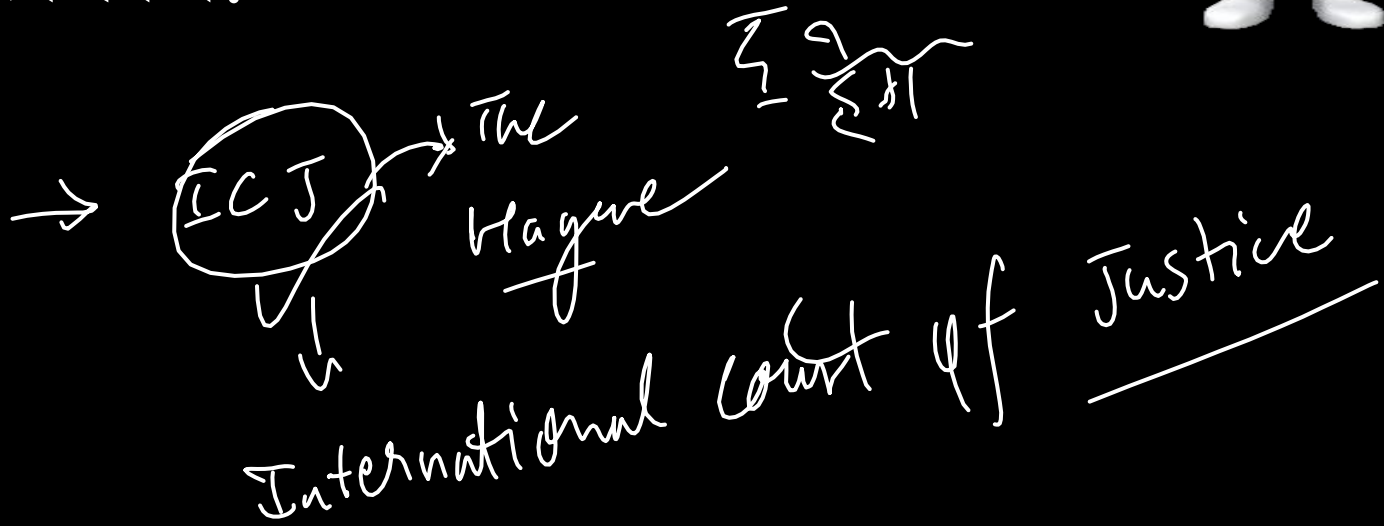 → ICJ → The
Hague
International Court of Justice